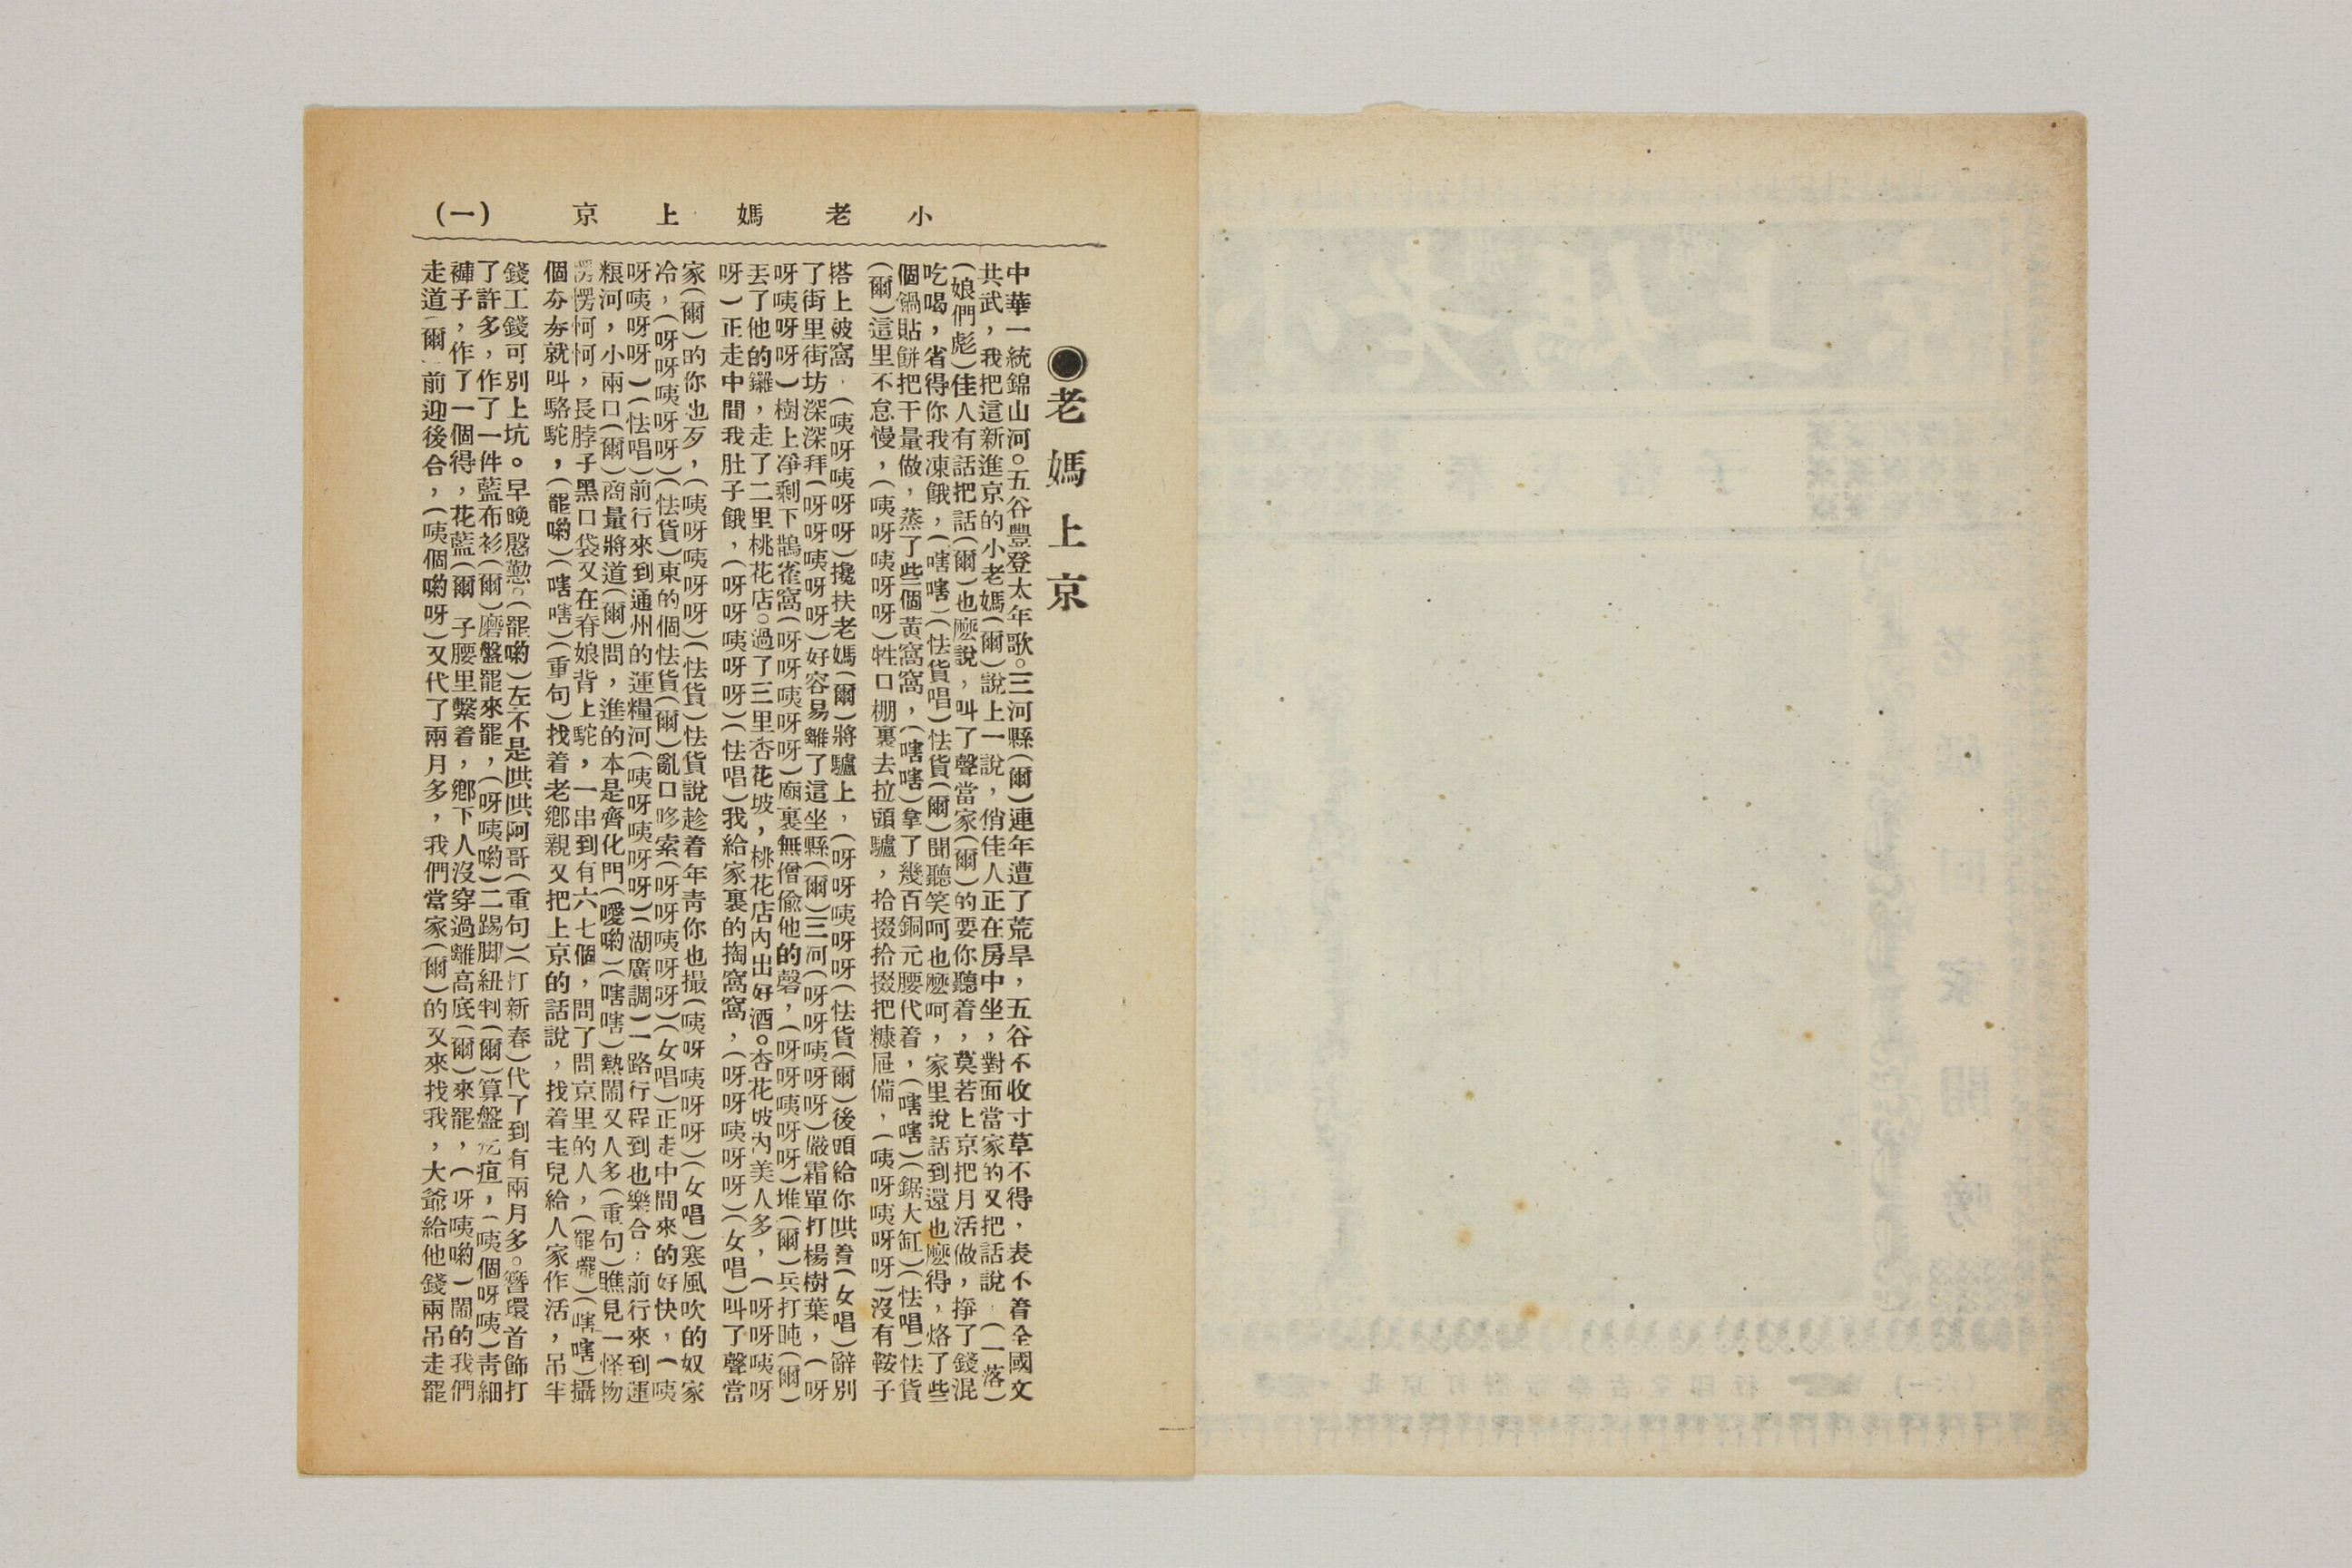 小老媽上京 (一)
●老媽上京
中華一統錦山河。五谷豐登太年歌。三河縣(爾)連年遭了荒旱，五谷不收寸草不得，表不着全國文
共武，我把這新進京的小老媽(爾)說上一說，俏佳人正在房中坐，對面當家的又把話說，(一落)
(娘們彪)佳人有話把話(爾)也麽說，叫了聲當家(爾)的要你聽着，莫若上京把月活做，掙了錢混
吃喝，省得你我凍餓，(嗐嗐)(怯貨唱)怯貨(爾)聞聽笑呵也麽呵，家里說話到還也麽得，烙了些
個鍋貼餅把干量做，蒸了些個黃窩窩，(嗐嗐)拿了幾百銅元腰代着，(嗐嗐)(鋸大缸)(怯唱)怯貨
(爾)這里不怠慢，(咦呀咦呀呀)牲口棚裏去拉頭驢，拾掇拾掇把糠屉備，(咦呀咦呀呀)沒有鞍子
搭上被窩，(咦呀咦呀呀)攙扶老媽(爾)將驢上，(呀呀咦呀呀(怯貨(爾)後頭給你哄着(女唱)辭別
了街里街坊深深拜(呀呀咦呀呀)好容易離了這坐縣(爾)三河(呀呀咦呀呀)嚴霜單打楊樹葉，(呀
呀咦呀呀)樹上凈剩下鵲雀窩(呀呀咦呀呀)廟裏無僧偸他的磬，(呀呀咦呀呀)堆(爾)兵打盹(爾)
丟了他的鑼，走了二里桃花店。過了三里杏花坡，桃花店內出好酒。杏花坡內美人多，(呀呀咦呀
呀)正走中間我肚子餓，(呀呀咦呀呀)(怯唱)我給家裏的掏窩窩，(呀呀咦呀呀)(女唱)叫了聲當
家(爾)的你也歹，(咦呀咦呀呀)(怯貨)怯貨說趁着年靑你也撮(咦呀咦呀呀)(女唱)寒風吹的奴家
冷，(呀呀咦呀呀)(怯貨)東的個怯貨(爾)亂口哆索(呀呀咦呀呀)(女唱)正走中間來的好快，(咦
呀咦呀呀)(怯唱)前行來到通州的運糧河(咦呀咦呀呀)(湖廣調)一路行程到也樂合：前行來到運
粮河，小兩口(爾)商量將道(爾)問，進的本是齊化門(噯喲)(嗐嗐)熱鬧又人多(重句)瞧見一怪物
愣愣怐怐，長脖子黑口袋又在脊娘背上駝，一串到有六七個，問了問京里的人，(罷囉)(嗐嗐)攝
個夯夯就叫駱駝，(罷喲)(嗐嗐)(重句)找着老鄉親又把上京的話說，找着主兒給人家作活，吊半
錢工錢可別上坑。早晚慇懃。(罷喲)左不是哄哄阿哥(重句)(打新春)代了到有兩月多。簪環首飾打
了許多，作了一件藍布衫(爾)磨盤罷來罷，(呀咦喲)二踢脚紐判(爾)算盤疙疸，(咦個呀咦)靑細
褲子，作了一個得，花藍(爾 子腰里繫着，鄉下人沒穿過離高底(爾)來罷，(呀咦喲)鬧的我們
走道(爾)前迎後合，(咦個喲呀)又代了兩月多，我們當家(爾)的又來找我，大爺給他錢兩吊走罷